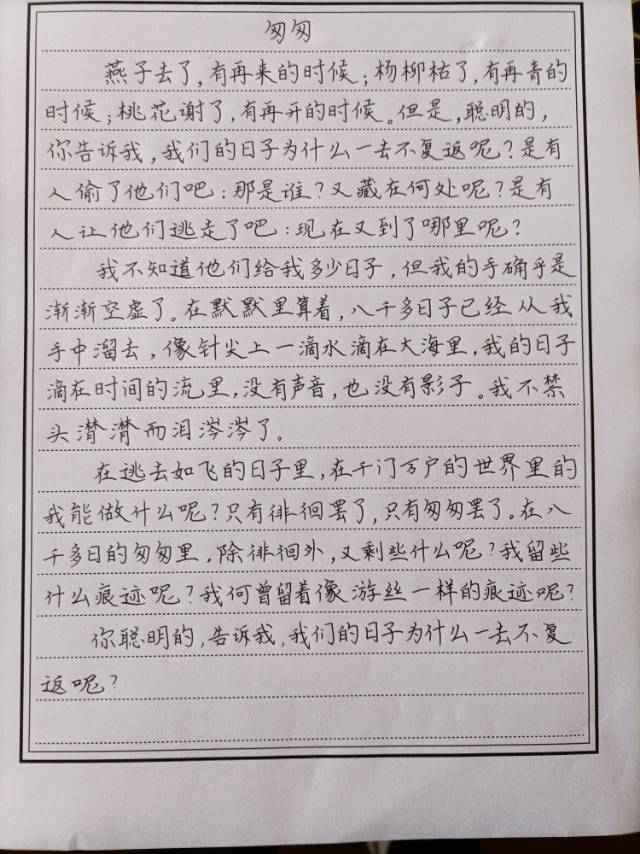 匆匆
燕子去了，有再来的时候；杨柳枯了，有再青的
时候；桃花谢了，有再开的时候。但是，聪明的，
你告诉我，我们的日子为什么一去不复返呢？是有
人偷了他们吧：那是谁？又藏在何处呢？是有
人让他们逃走了吧：现在又到了哪里呢？
我不知道他们给我多少日子，但我的手确乎是
渐渐空虚了。在默默里算着，八千多日子已经从我
手中溜去，像针尖上一滴水滴在大海里，我的日子
滴在时间的流里，没有声音，也没有影子。我不禁
头潸潸而泪涔涔了。
在逃去如飞的日子里，在千门万户的世界里的
我能做什么呢？只有徘徊罢了，只有匆匆罢了。在八
千多日的匆匆里，除徘徊外，又剩些什么呢？我留些
什么痕迹呢？我何曾留着像游丝一样的痕迹呢？
你聪明的，告诉我，我们的日子为什么一去不复
返呢？